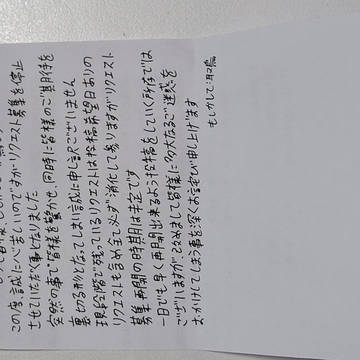 この度、誠に心苦しいのですがリクエスト募集を停止
させていただく事となりました
突然の事で皆様を驚かせ、同時に皆様のご期待を
裏切る形となってしまい誠に申し訳ございません
現段階で残っているリクエストは投稿希望日ありの
リクエストも含め全て必ず消化してありますがリクエスト
募集再開の時期は未定です
一日でも早く再開出来るよう投稿をしていく所存では
ございますが、改めまして皆様に多大なるご迷惑を
おかけしてしまう事を深くお詫び申し上げます
もしかして:沼病